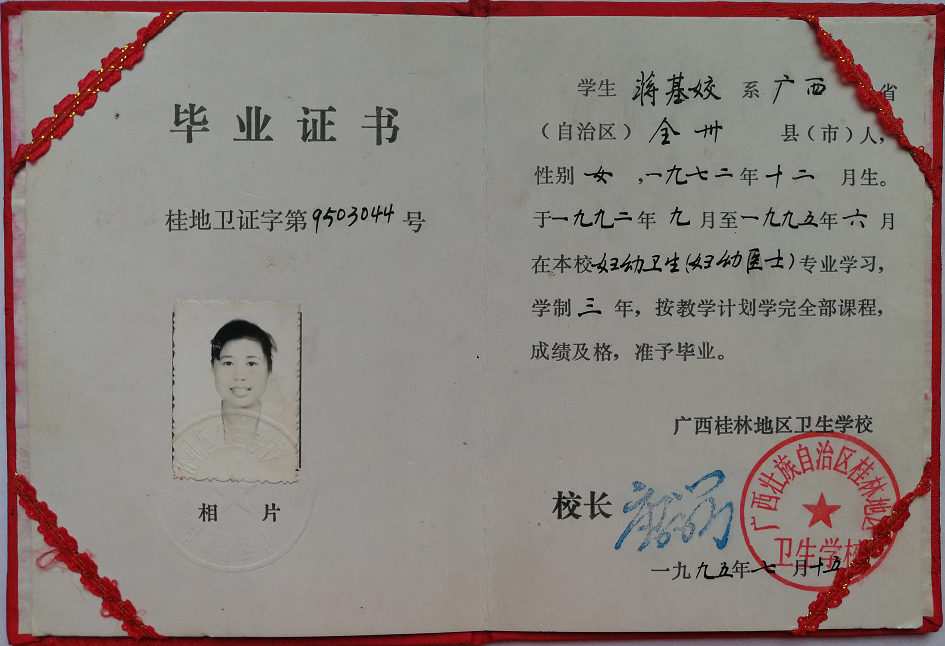 毕业证书
桂地卫证字第9503044号
相 片
学生 蒋基姣 系 广西 省
（自治区） 全州 县（市）人，
性别 女 ，一九七二年 十二 月生。
于一九九二年 九 月至一九九五年 六 月
在本校妇幼卫生(妇幼医士)专业学习，
学制 三 年，按教学计划学完全部课程，
成绩及格，准予毕业。
广西桂林地区卫生学校
校长
一九九五年七月十五
广西壮族自治区桂林地区
卫生学校